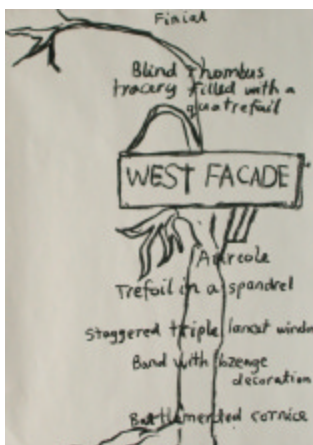 Finial
Blind rhombus
tracery filled with a
quatrefoil
WEST FACADE
Aureole
Trefoil in a spandrel
Staggered triple lancet window
Band with lozenge
decoration
Battlemented cornice